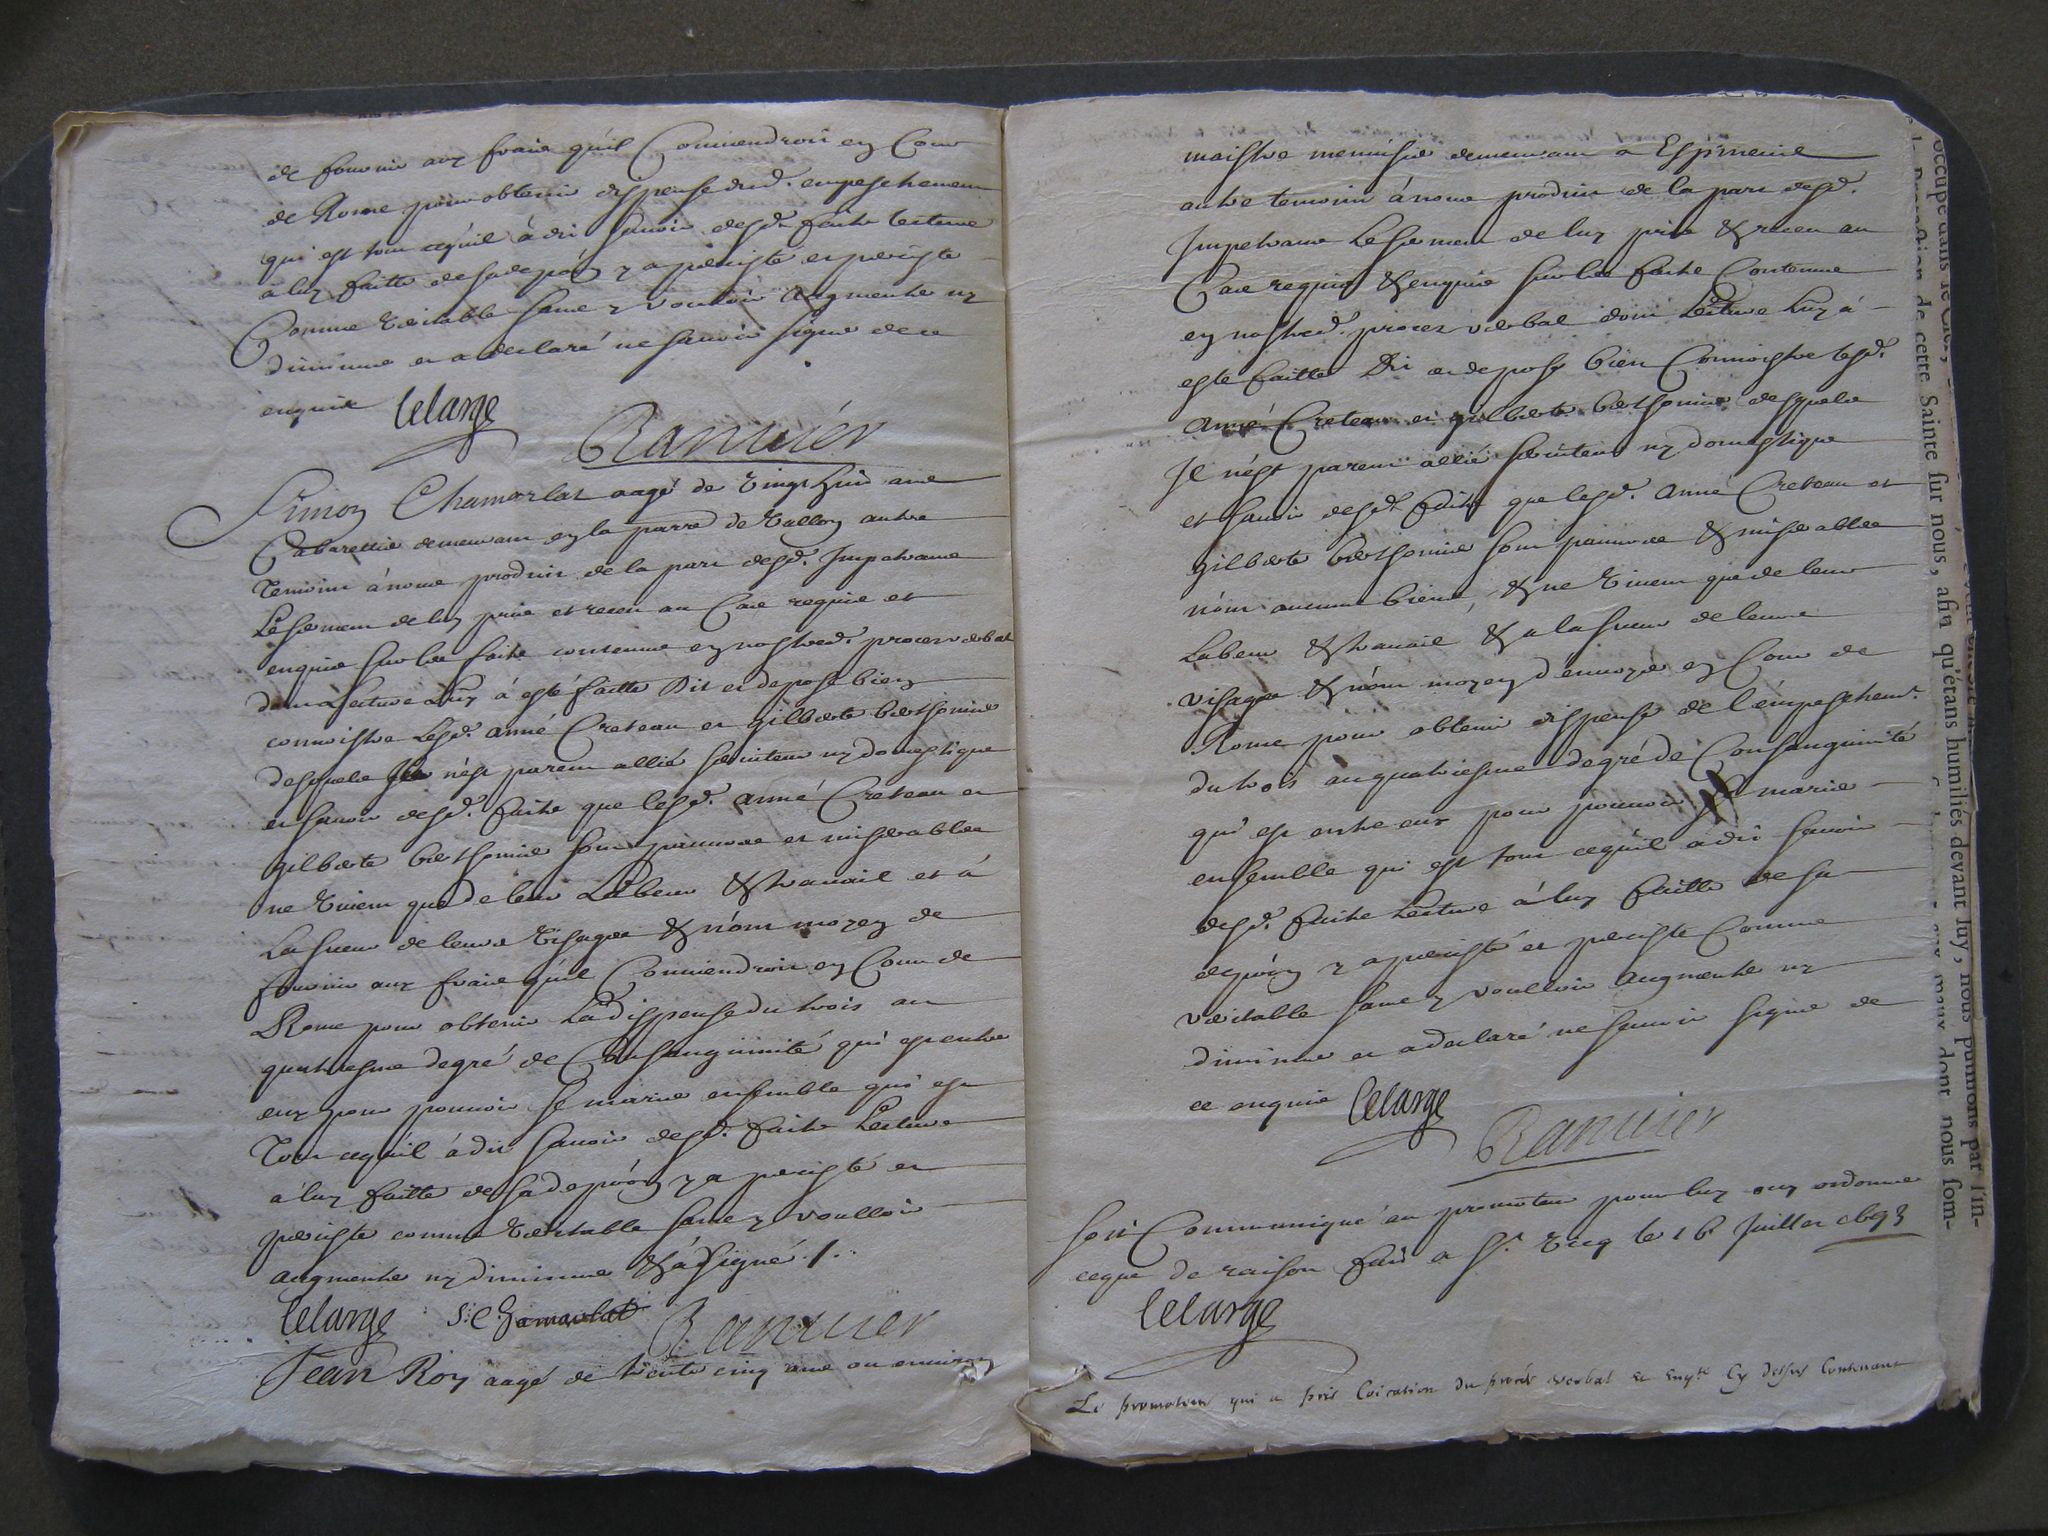 de fournir aux fraie quil Conviendroit en Cour
de Rome pour obtenir dispense dud. empeschement
qui est tout cequil à dit scavoir desd. faits lecture
à luy faitte de sa depoôn y a persisté et persiste
Comme veritable sans y vouloir augmenter ny
diminuer et a declaré ne scavoir signer de ce
enquis lelarge
Rannier
Simon Chamarlat aagé de vingt huit ans
Cabarettier demeurant en la parre de vallon autre
Temoin à nous produit de la part desd. Impetrans
Le serment de luy pris et receu au Cas requis et
enquis sur les faits contenus en nostred. proces verbal
dont Lecture Luy à esté faitte Dit et depose bien
connoistre Lesd. anné Creteau et gilberte berthomier
desquels n'est parent allié serviteur ny domestique
et scavoir desd. faits que lesd. anné Creteau et
gilberte berthomier sont pauvres et miserables
ne vivent que de leur Labeur & travail et à
La sueur de leurs visages & n'ont moyen de
fournir aux fraie quil Conviendroit en Cour de
Rome pour obtenir La dispense du trois au
quatriesme degré de Consanguinité qui est entre
eux pour pouvoir se marier ensemble qui est
Tout cequil à dit scavoir desd. faits Lecture
à luy faitte de sa depoôn y a persisté et
persiste comme veritable sans y voulloir
augmenter ny diminuer & à signé ./.
lelarge S. Chamarlat Rannier
Jean Roy aagé de trente cinq ans ou environ
maistre menuisier demeurant a Espineuil
autre temoin à nous produit de la part desd.
Impetrans Le serment de luy pris & receu au
Cas requis & enquis sur les faits Contenus
en nostred. proces verbal dont Lecture Luy à
esté faitte Dit et depose bien Connoistre lesd.
anné Creteau et gilberte berthomier desquels
Il n'est parent allié serviteur ny domestique
et scavoir desd. faits que lesd. anné Creteau et
gilberte berthomier sont pauvres & miserables
n'ont aucuns biens, & ne vivent que de leur
Labeur & travail & a la sueur de leurs
visages & n'ont moyen d'envoyer en Cour de
Rome pour obtenir dispense de l'empeschemt.
du trois au quatriesme degré de Consanguinité
qui est entre eux pour pouvoir se marier
ensemble qui est tout cequil a dit scavoir
desd. faits Lecture à luy faitte de sa
depoôn y a persisté et persiste Comme
veritable sans y voulloir augmenter ny
diminuer et a declaré ne scavoir signer de
ce enquis lelarge
Rannier
Soit Communiqué au promoteur pour luy ouy ordonner
ceque de raison fait a St. Vicq le 16 Juillet 1693
lelarge
Le promoteur qui a pris Coication du procés verbal et enqte. Cy dessus Contenant
occupé dans le
de cette Sainte
sur nous, afin qu'étans humiliés devant luy, nous puissions par l'in-
aux maux dont nous som-